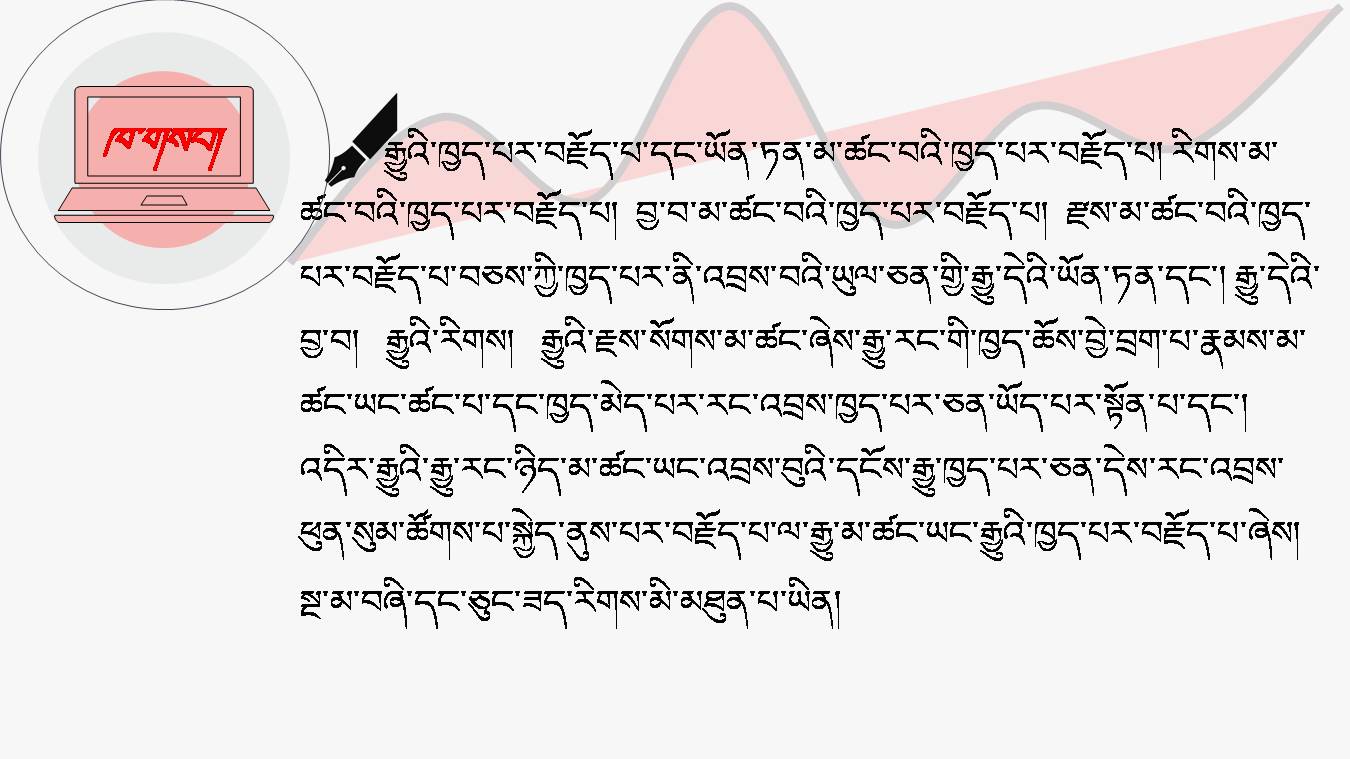 ཁ་གསབ།
རྒྱུའི་ཁྱད་པར་བརྗོད་པ་དང་ཡོན་ཏན་མ་ཚང་བའི་ཁྱད་པར་བརྗོད་པ། རིགས་མ་
ཚང་བའི་ཁྱད་པར་བརྗོད་པ། བྱ་བ་མ་ཚང་བའི་ཁྱད་པར་བརྗོད་པ། རྫས་མ་ཚང་བའི་ཁྱད་
པར་བརྗོད་པ་བཅས་ཀྱི་ཁྱད་པར་ནི་འབྲས་བའི་ཡུལ་ཅན་གྱི་རྒྱུ་དེའི་ཡོན་ཏན་དང་། རྒྱུ་དེའི་
བྱ་བ། རྒྱུའི་རིགས། རྒྱུའི་རྫས་སོགས་མ་ཚང་ཞེས་རྒྱུ་རང་གི་ཁྱད་ཆོས་བྱེ་བྲག་པ་རྣམས་མ་
ཚང་ཡང་ཚང་པ་དང་ཁྱད་མེད་པར་རང་འབྲས་ཁྱད་པར་ཅན་ཡོད་པར་སྟོན་པ་དང་།
འདིར་རྒྱུའི་རྒྱུ་རང་ཉིད་མ་ཚང་ཡང་འབྲས་བུའི་དངོས་རྒྱུ་ཁྱད་པར་ཅན་དེས་རང་འབྲས་
ཕུན་སུམ་ཚོགས་པ་སྐྱེད་ནུས་པར་བརྗོད་པ་ལ་རྒྱུ་མ་ཚང་ཡང་རྒྱུའི་ཁྱད་པར་བརྗོད་པ་ཞེས།
སྔ་མ་བཞི་དང་ཅུང་ཟད་རིགས་མི་མཐུན་པ་ཡིན།